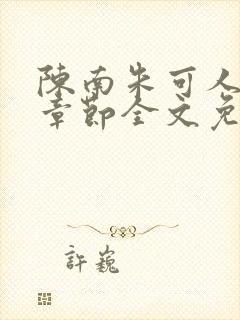 陳南朱可人
章節全文免
許巍